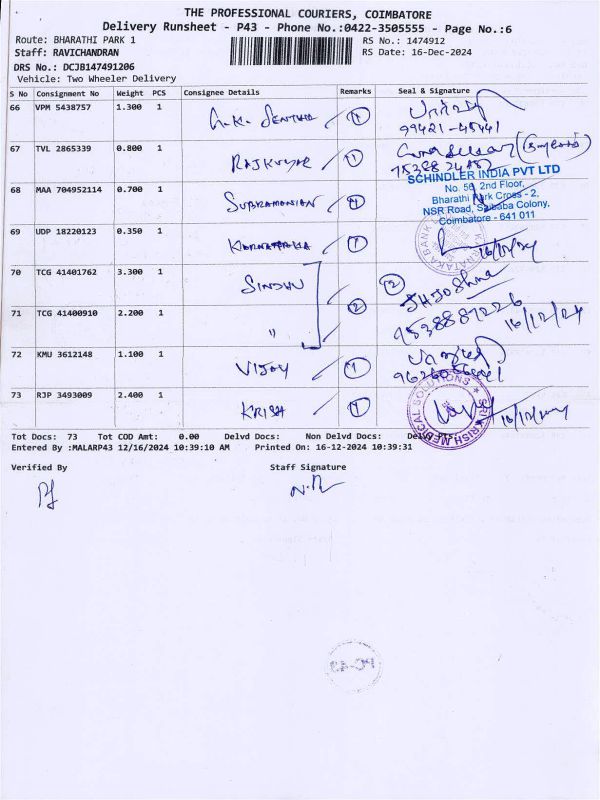 THE PROFESSIONAL COURIERS, COIMBATORE
Delivery Runsheet - P43 - Phone No.:0422-3505555 - Page No.:6
Route: BHARATHI PARK 1 RS No.: 1474912
Staff: RAVICHANDRAN RS Date: 16-Dec-2024
DRS No.: DCJB147491206
Vehicle: Two Wheeler Delivery
S No Consignment No Weight PCS Consignee Details Remarks Seal & Signature
66 VPM 5438757 1.300 1 1
99421-45441
67 TVL 2865339 0.800 1 RAJKUMAR 1
68 MAA 704952114 0.700 1 SUBRAMANIAN 1
SCHINDLER INDIA PVT LTD
No. 56, 2nd Floor,
Bharathi Park Cross - 2,
NSR Road, Saibaba Colony,
Coimbatore - 641 011
69 UDP 18220123 0.350 1 KARNATAKA 1
KARNATAKA BANK
16/12/24
70 TCG 41401762 3.300 1 SINDHU 2
9538887226
16/12/24
71 TCG 41400910 2.200 1 " 2
72 KMU 3612148 1.100 1 VIJAY 1
73 RJP 3493009 2.400 1 KRISH 1
SRI KRISH MEDICAL SOLUTIONS
Tot Docs: 73 Tot COD Amt: 0.00 Delvd Docs: Non Delvd Docs: Delvd
Entered By :MALARP43 12/16/2024 10:39:10 AM Printed On: 16-12-2024 10:39:31
Verified By Staff Signature